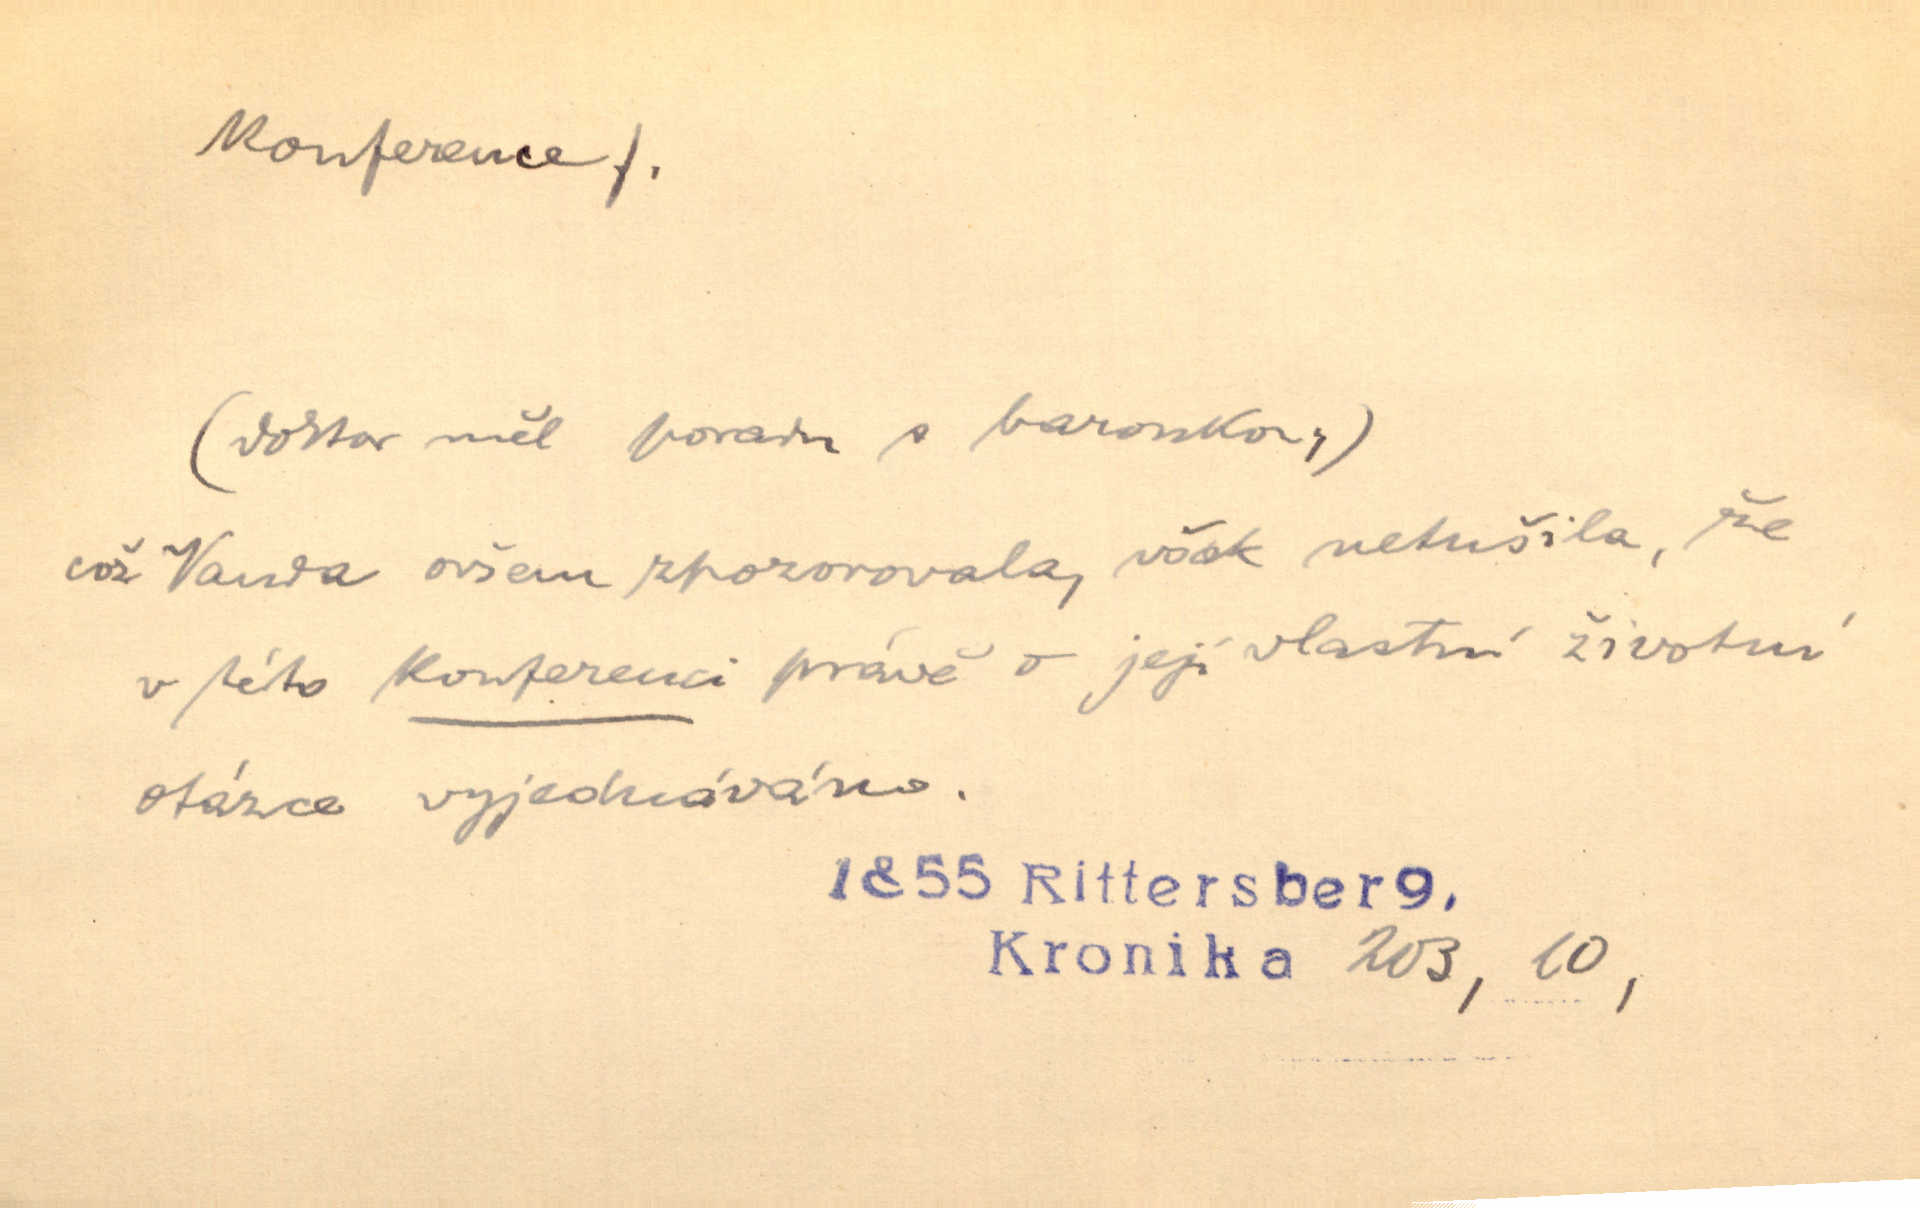 Konference f.
(doktor měl poradu s baronkou,)
což Vanda ovšem zpozorovala, však netušila, že
v této konferenci právě o její vlastní životní
otázce vyjednáváno.
1855 Rittersberg,
Kronika 203, 10,